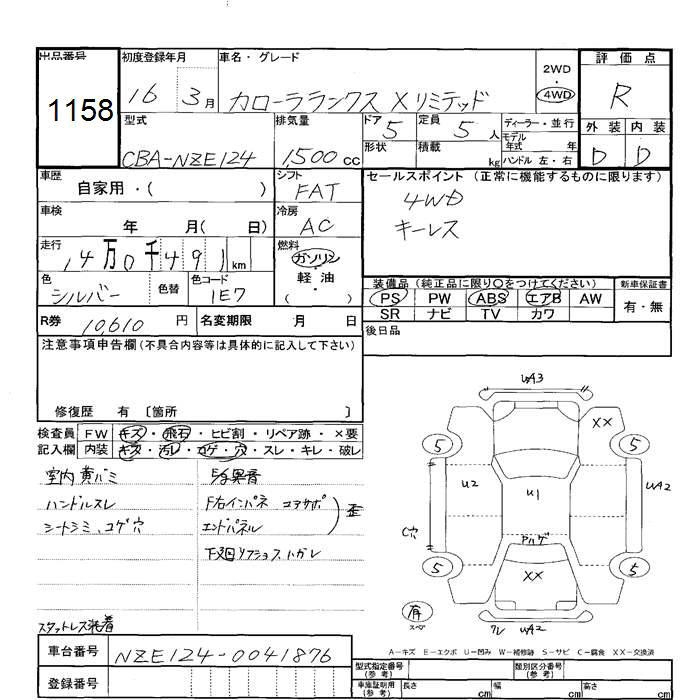 出品番号
1158
初度登録年月
16 3月
車名・グレード
カローラランクス Xリミテッド
2WD
・
4WD
評価点
R
外装 内装
D D
型式
CBA-NZE124
排気量
1,500cc
ドア 5
形状
定員 5人
積載 kg
ディーラー・並行
モデル年式 年
ハンドル 左・右
車歴
自家用・( )
シフト
FAT
セールスポイント (正常に機能するものに限ります)
4WD
キーレス
車検
年 月( 日)
冷房
AC
走行
14万0千491km
燃料
ガソリン・
軽油・
( )
色
シルバー
色替
色コード
1E7
装備品 (純正品に限り○をつけてください)
PS PW ABS エアB AW
SR ナビ TV カワ
新車保証書
有・無
R券 10610円
名変期限 月 日
後日品
注意事項申告欄(不具合内容等は具体的に記入して下さい)
修復歴 有 〔箇所 〕
検査員 FW キズ・飛石・ヒビ割・リペア跡・×要
記入欄 内装 キズ・汚レ・コゲ・穴・スレ・キレ・破レ
室内黄バミ
ハンドルスレ
シートシミ、コゲ穴
スタットレス装着
F右インパネ コアサポ
エンドパネル
歪
下廻リアショスハガレ
UA3
XX
5 5
U2 U1 UA2
C穴
Pハゲ
5 XX 5
有
スペア
ワレ UA2
A-キズ E-エクボ U-凹み W-補修跡 S-サビ C-腐食 XX-交換済
車台番号 NZE124-0041876
登録番号
型式指定番号
(参考)
類別区分番号
(参考)
車庫証明用
(参考)
長さ cm
幅 cm
高さ cm